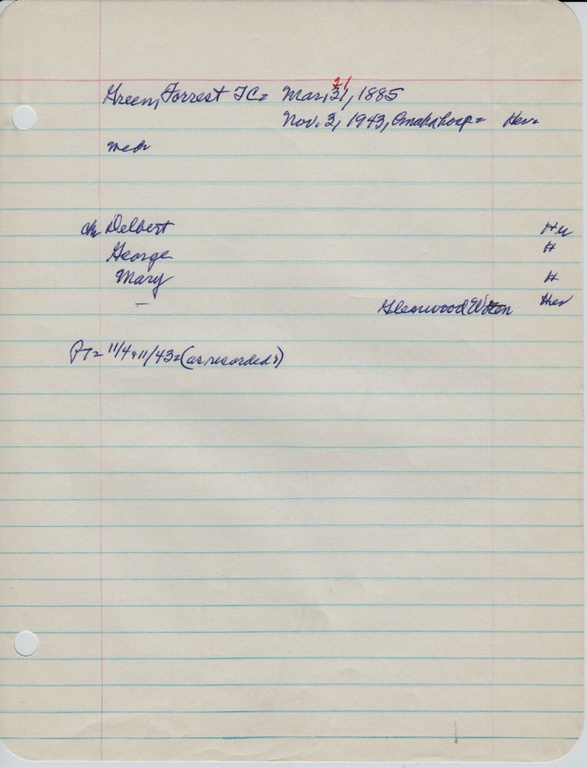 21
Green, Forrest TC= Mar. 31, 1885
Nov. 3, 1943, Omaha hosp= Her=
med=
ch Delbert H
George H
Mary H
—
Glenwood
PT= 11/4 11/43= (as recorded?)